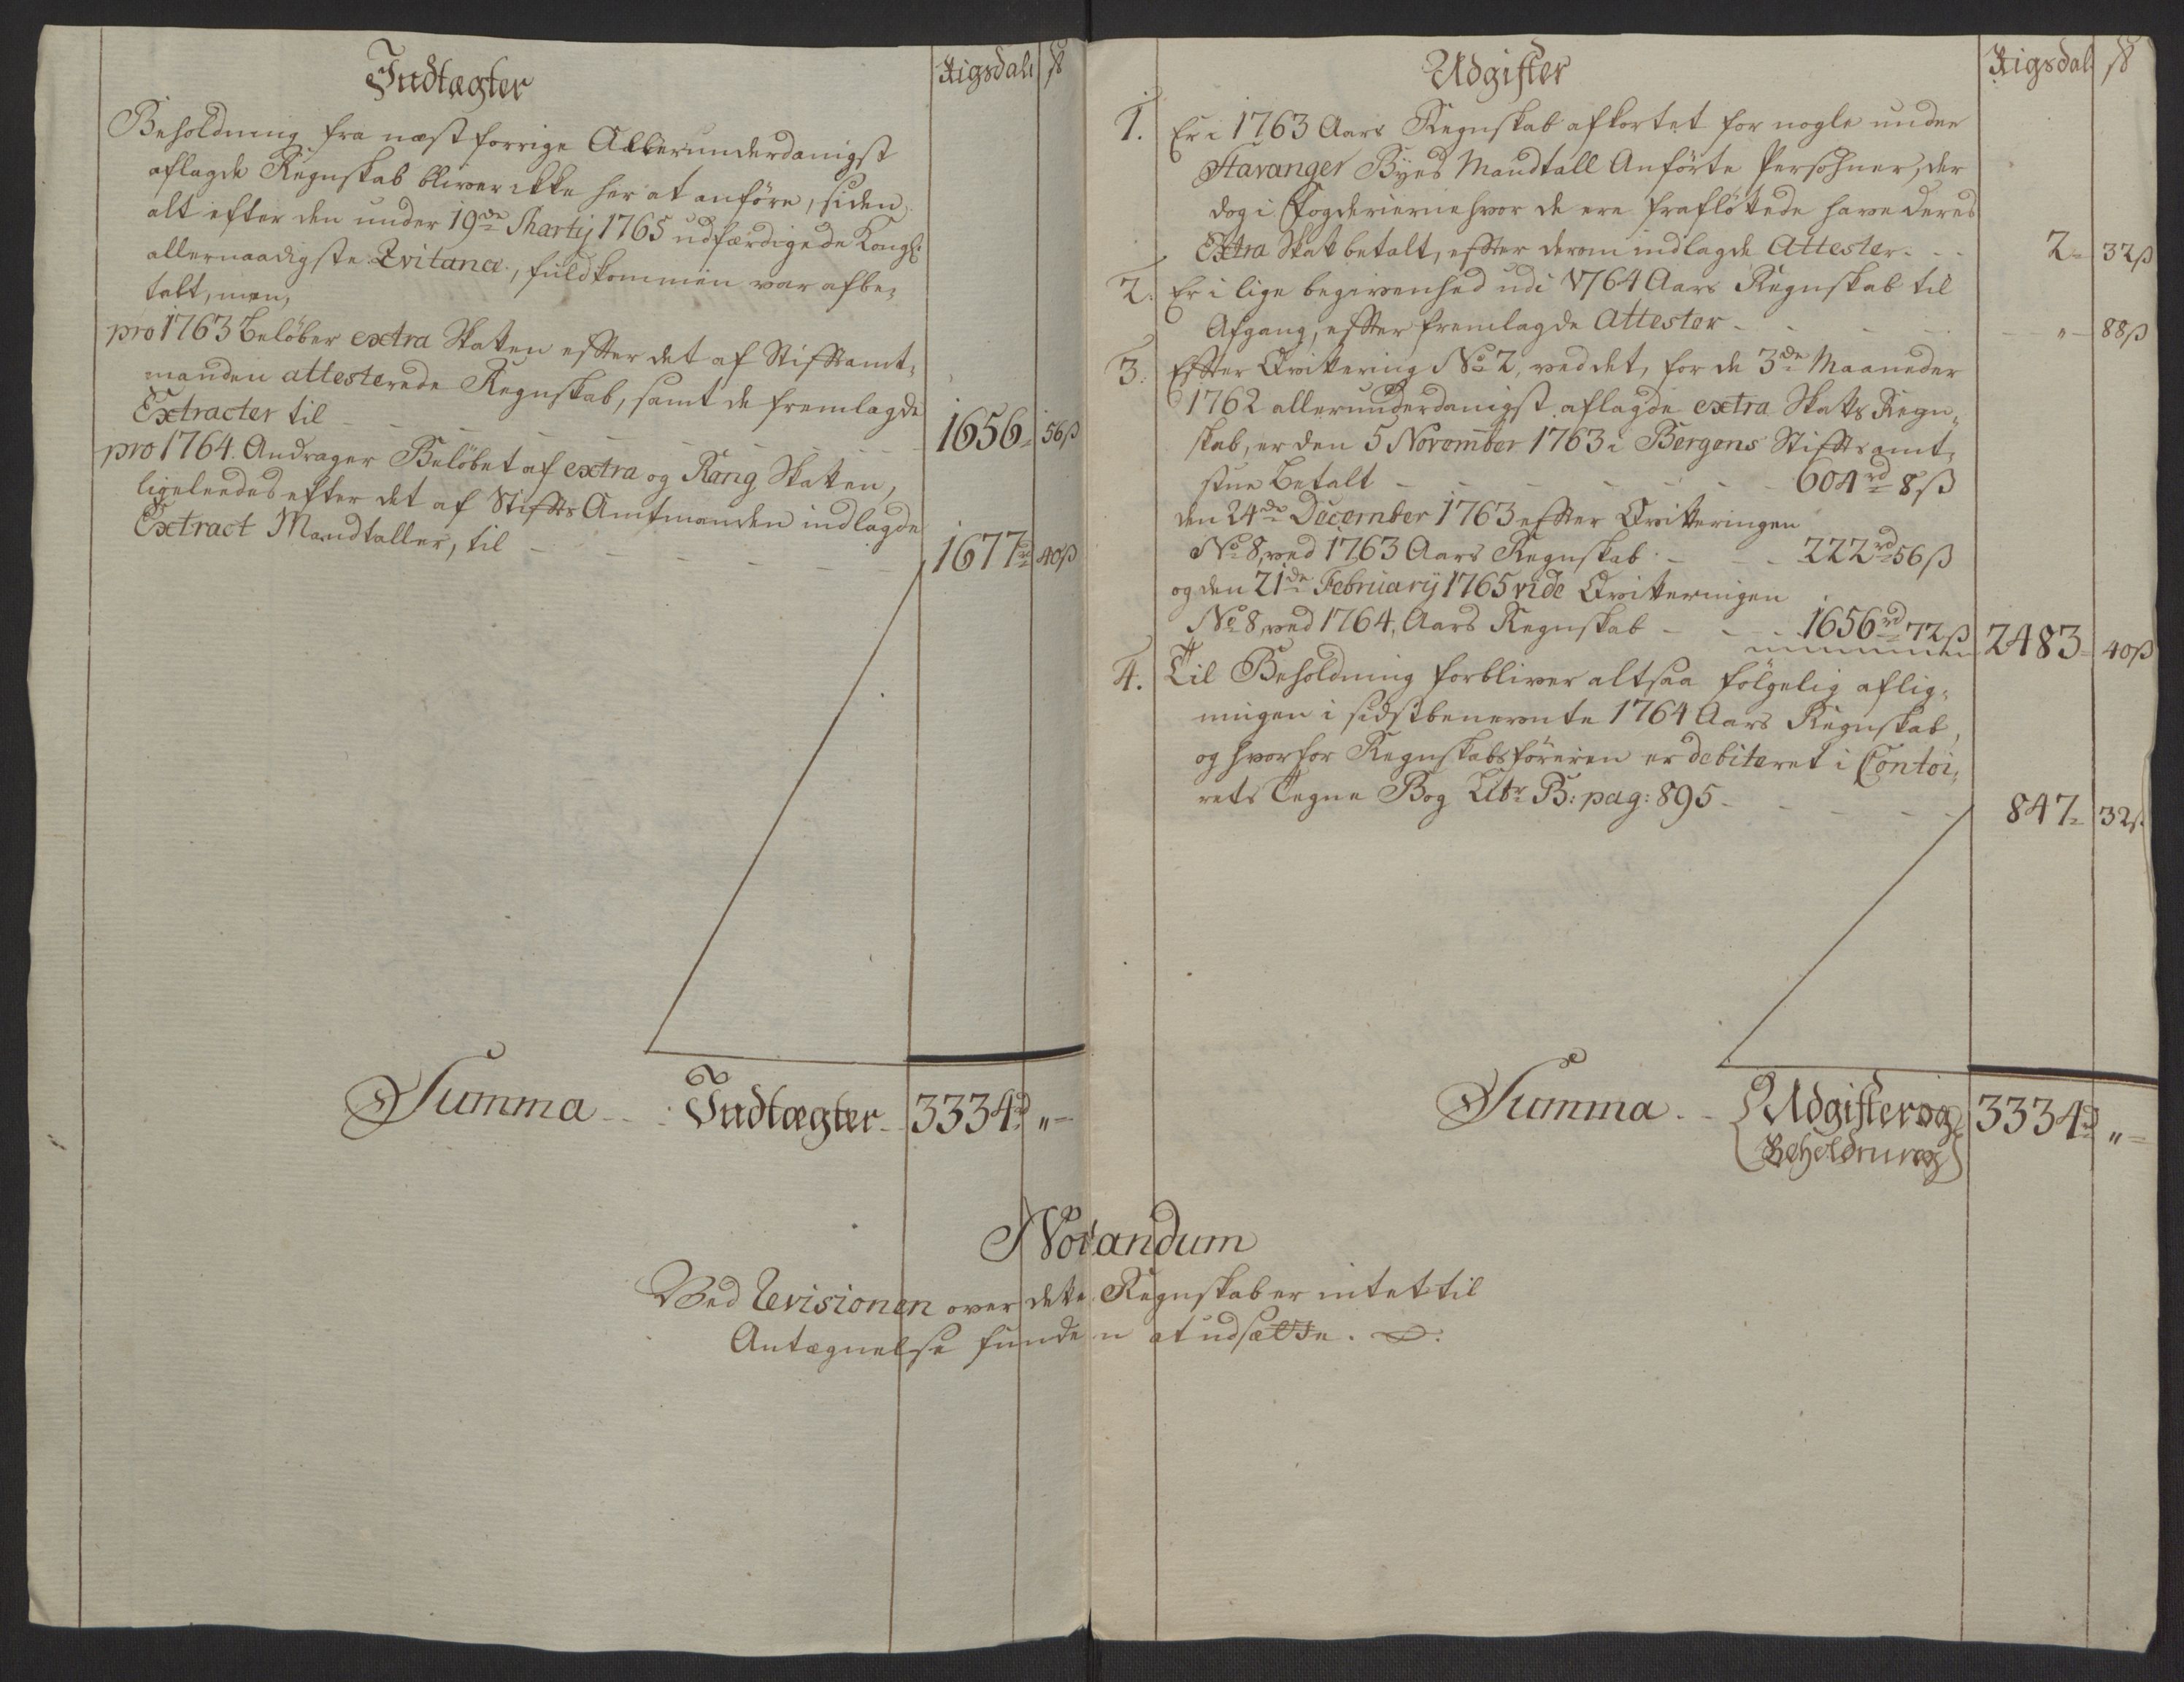 Indtægter
Rigsdal ß
Beholdning fra næst forrige Allerunderdanigst
aflagde Regnskab bliver ikke her at anföre, siden
alt efter den under 19de Martij 1765 udfærdigede Kongl:
allernaadigste Qvitance, fuldkommen var afbe-
talt, men,
pro 1763 Belöber extra Skatten efter det af Stiftamt-
manden attesterede Regnskab, samt de fremlagde
Extracter til - - - - - - - 1656 56ß
pro 1764. Andrager Belöbet af extra og Rang Skatten,
ligeleedes efter det af Stifts Amtmanden indlagde
Extract Mandtaller, til - - - - - - 1677rd 40ß
Summa - - Indtægter - 3334rd „-
Udgifter
Rigsdal ß
1. Er i 1763 Aars Regnskab afkortet for nogle under
Stavanger Byes Mandtall Anförte Persohner, der
dog i Fogderierne hvor de ere fraflöttede have deres
Extra Skat betalt, efter derom indlagde Attester - - - 2 32ß
2. Er i lige begivenhed udi 1764 Aars Regnskab til
Afgang, efter fremlagde Attester - - - - - „- 88ß
3. Efter Qvittering No 2, ved det, for de 3de Maaneder
1762 allerunderdanigst aflagde extra Skatts Regn-
skab, er den 5 November 1763 i Bergens Stiftsamt-
stue Betalt - - - - - - 604rd 8ß
den 24de December 1763 efter Qvitteringen
No 8, ved 1763 Aars Regnskab - - - 222rd 56ß
og den 21de February 1765 vide Qvitteringen
No 8, ved 1764, Aars Regnskab - - - 1656rd 72ß 2483 40ß
4. Til Beholdning forbliver altsaa fölgelig aflig-
ningen i sidstbenevnte 1764 Aars Regnskab,
og hvorfor Regnskabsföreren er debiteret i Contoi-
rets Tegne Bog Litr B: pag: 895 - - - - 847 32ß
Summa - - Udgifter og 3334rd „-
Beholdning
Notandum
Ved Revisionen over dette Regnskab er intet til
Antegnelse funden at udsætte.